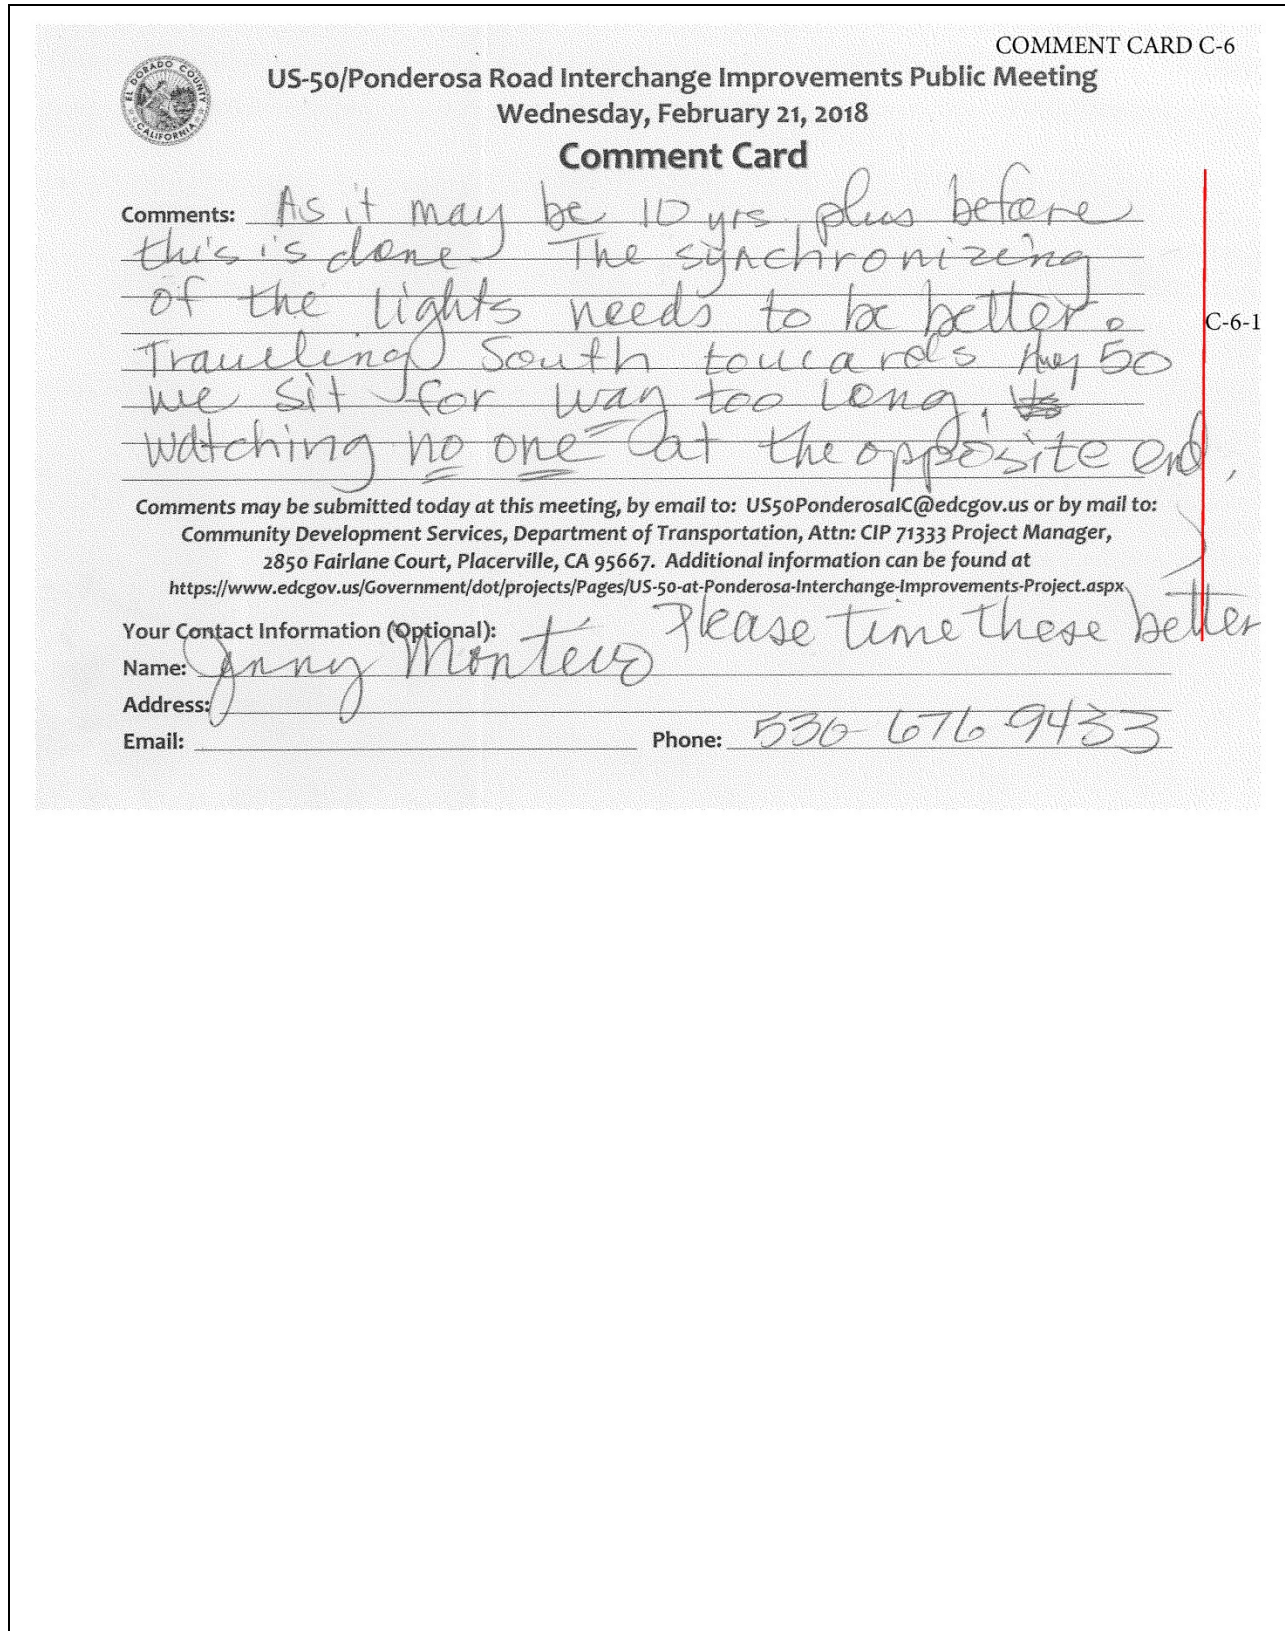 COMMENT CARD C-6
EL DORADO COUNTY
CALIFORNIA
US-50/Ponderosa Road Interchange Improvements Public Meeting
Wednesday, February 21, 2018
Comment Card
Comments: As it may be 10 yrs. plus before
this is done The synchronizing
of the lights needs to be better.
C-6-1
Traveling South towards Hwy 50
we sit for way too long,
watching no one at the opposite end,
Comments may be submitted today at this meeting, by email to: US50PonderosaIC@edcgov.us or by mail to:
Community Development Services, Department of Transportation, Attn: CIP 71333 Project Manager,
2850 Fairlane Court, Placerville, CA 95667. Additional information can be found at
https://www.edcgov.us/Government/dot/projects/Pages/US-50-at-Ponderosa-Interchange-Improvements-Project.aspx
Please time these better
Your Contact Information (Optional):
Name: Jenny Montevo
Address:
Email: Phone: 530 676 9433